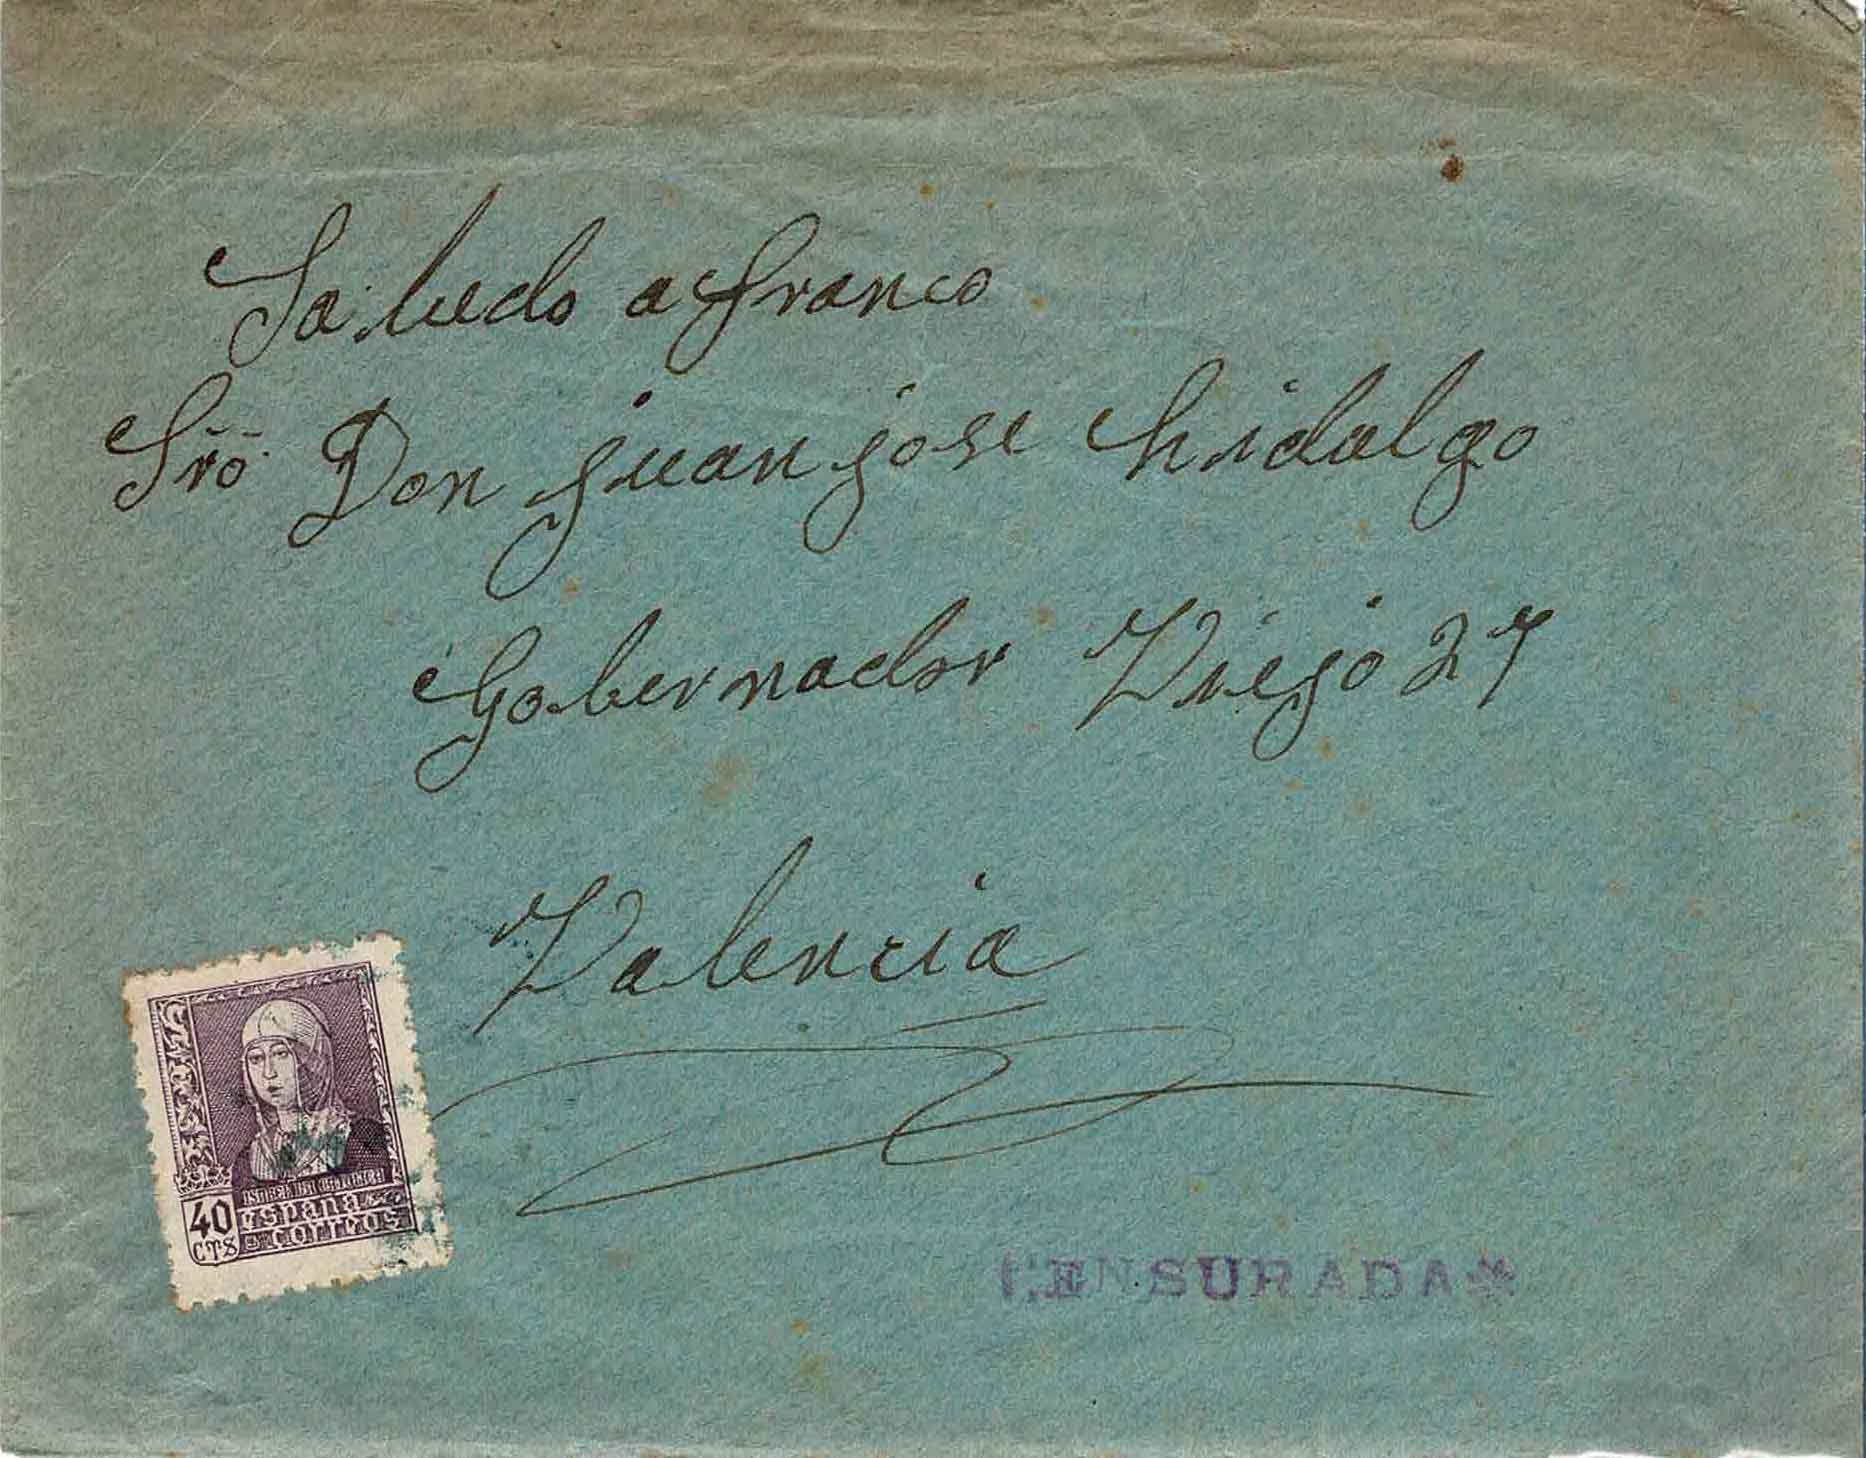 Saludo a franco
Sro Don juan jose hidalgo
Gobernador Viejo 27
Valencia
ISABEL LA CATOLICA
40 CTS
españa
correos
CENSURADA*